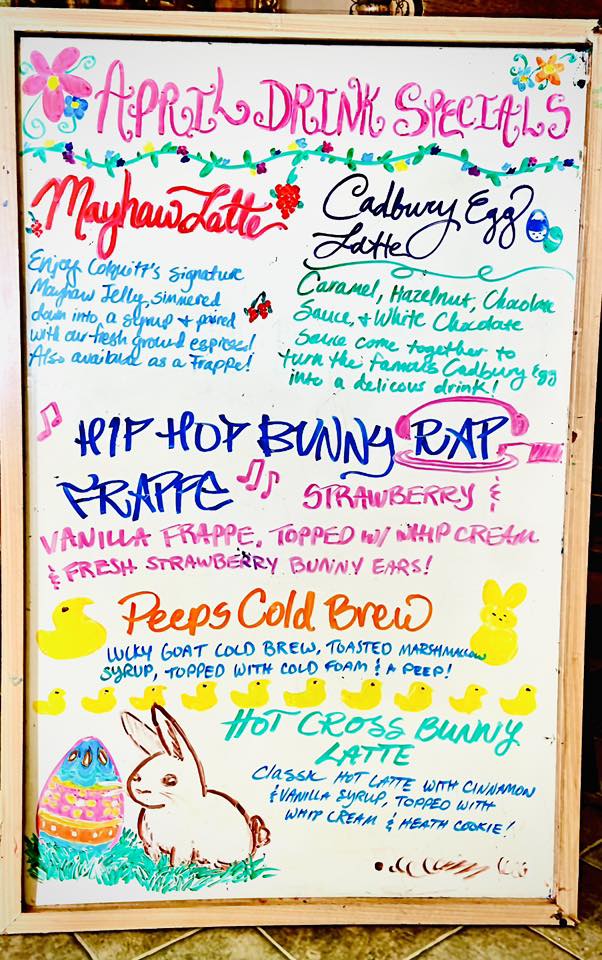 APRIL DRINK SPECIALS
Mayhaw Latte
Enjoy Colquitt's signature
Mayhaw Jelly, simmered
down into a syrup + paired
with our fresh ground espresso!
Also available as a Frappe!
Cadbury Egg
Latte
Caramel, Hazelnut, Chocolate
Sauce, + White Chocolate
Sauce come together to
turn the famous Cadbury Egg
into a delicous drink!
HIP HOP BUNNY RAP
FRAPPE
STRAWBERRY &
VANILLA FRAPPE, TOPPED W/ WHIP CREAM
& FRESH STRAWBERRY BUNNY EARS!
Peeps Cold Brew
LUCKY GOAT COLD BREW, TOASTED MARSHMALLOW
SYRUP, TOPPED WITH COLD FOAM & A PEEP!
HOT CROSS BUNNY
LATTE
CLASSIC HOT LATTE WITH CINNAMON
& VANILLA SYRUP, TOPPED WITH
WHIP CREAM & HEATH COOKIE!